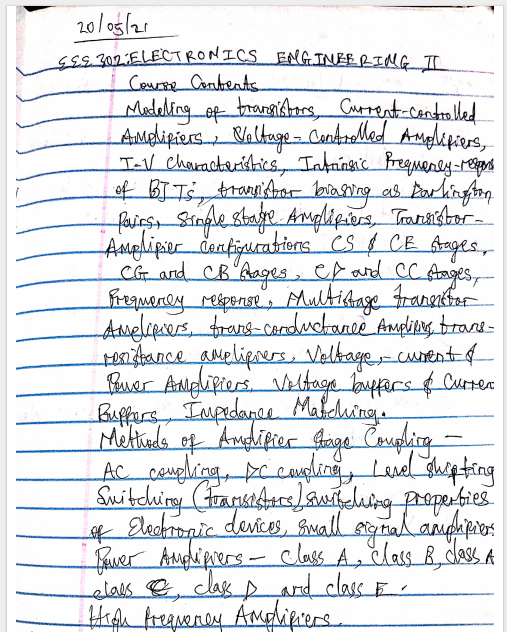 20/05/21
EEE.302:ELECTRONICS ENGINEERING II
Course Contents
Modeling of transistors, Current-controlled
Amplifiers, Voltage-Controlled Amplifiers,
I-V Characteristics, Intrinsic Frequency-respons
of BJTs, transistor biasing as Darlington
Pairs, Single stage Amplifiers, Transistor-
Amplifier configurations CS & CE stages,
CG and CB stages, CD and CC stages,
Frequency response, Multistage transistor
Amplifiers, trans-conductance Amplifiers, trans-
resistance amplifiers, Voltage,-current &
Power Amplifiers, Voltage buffers & Curren
Buffers, Impedance Matching.
Methods of Amplifier stage Coupling -
AC coupling, DC coupling, Level shifting
Switching (transistors) switching properties
of Electronic devices, small signal amplifiers
Power Amplifiers - Class A, Class B, class A
class C, class D and class E.
High frequency Amplifiers.